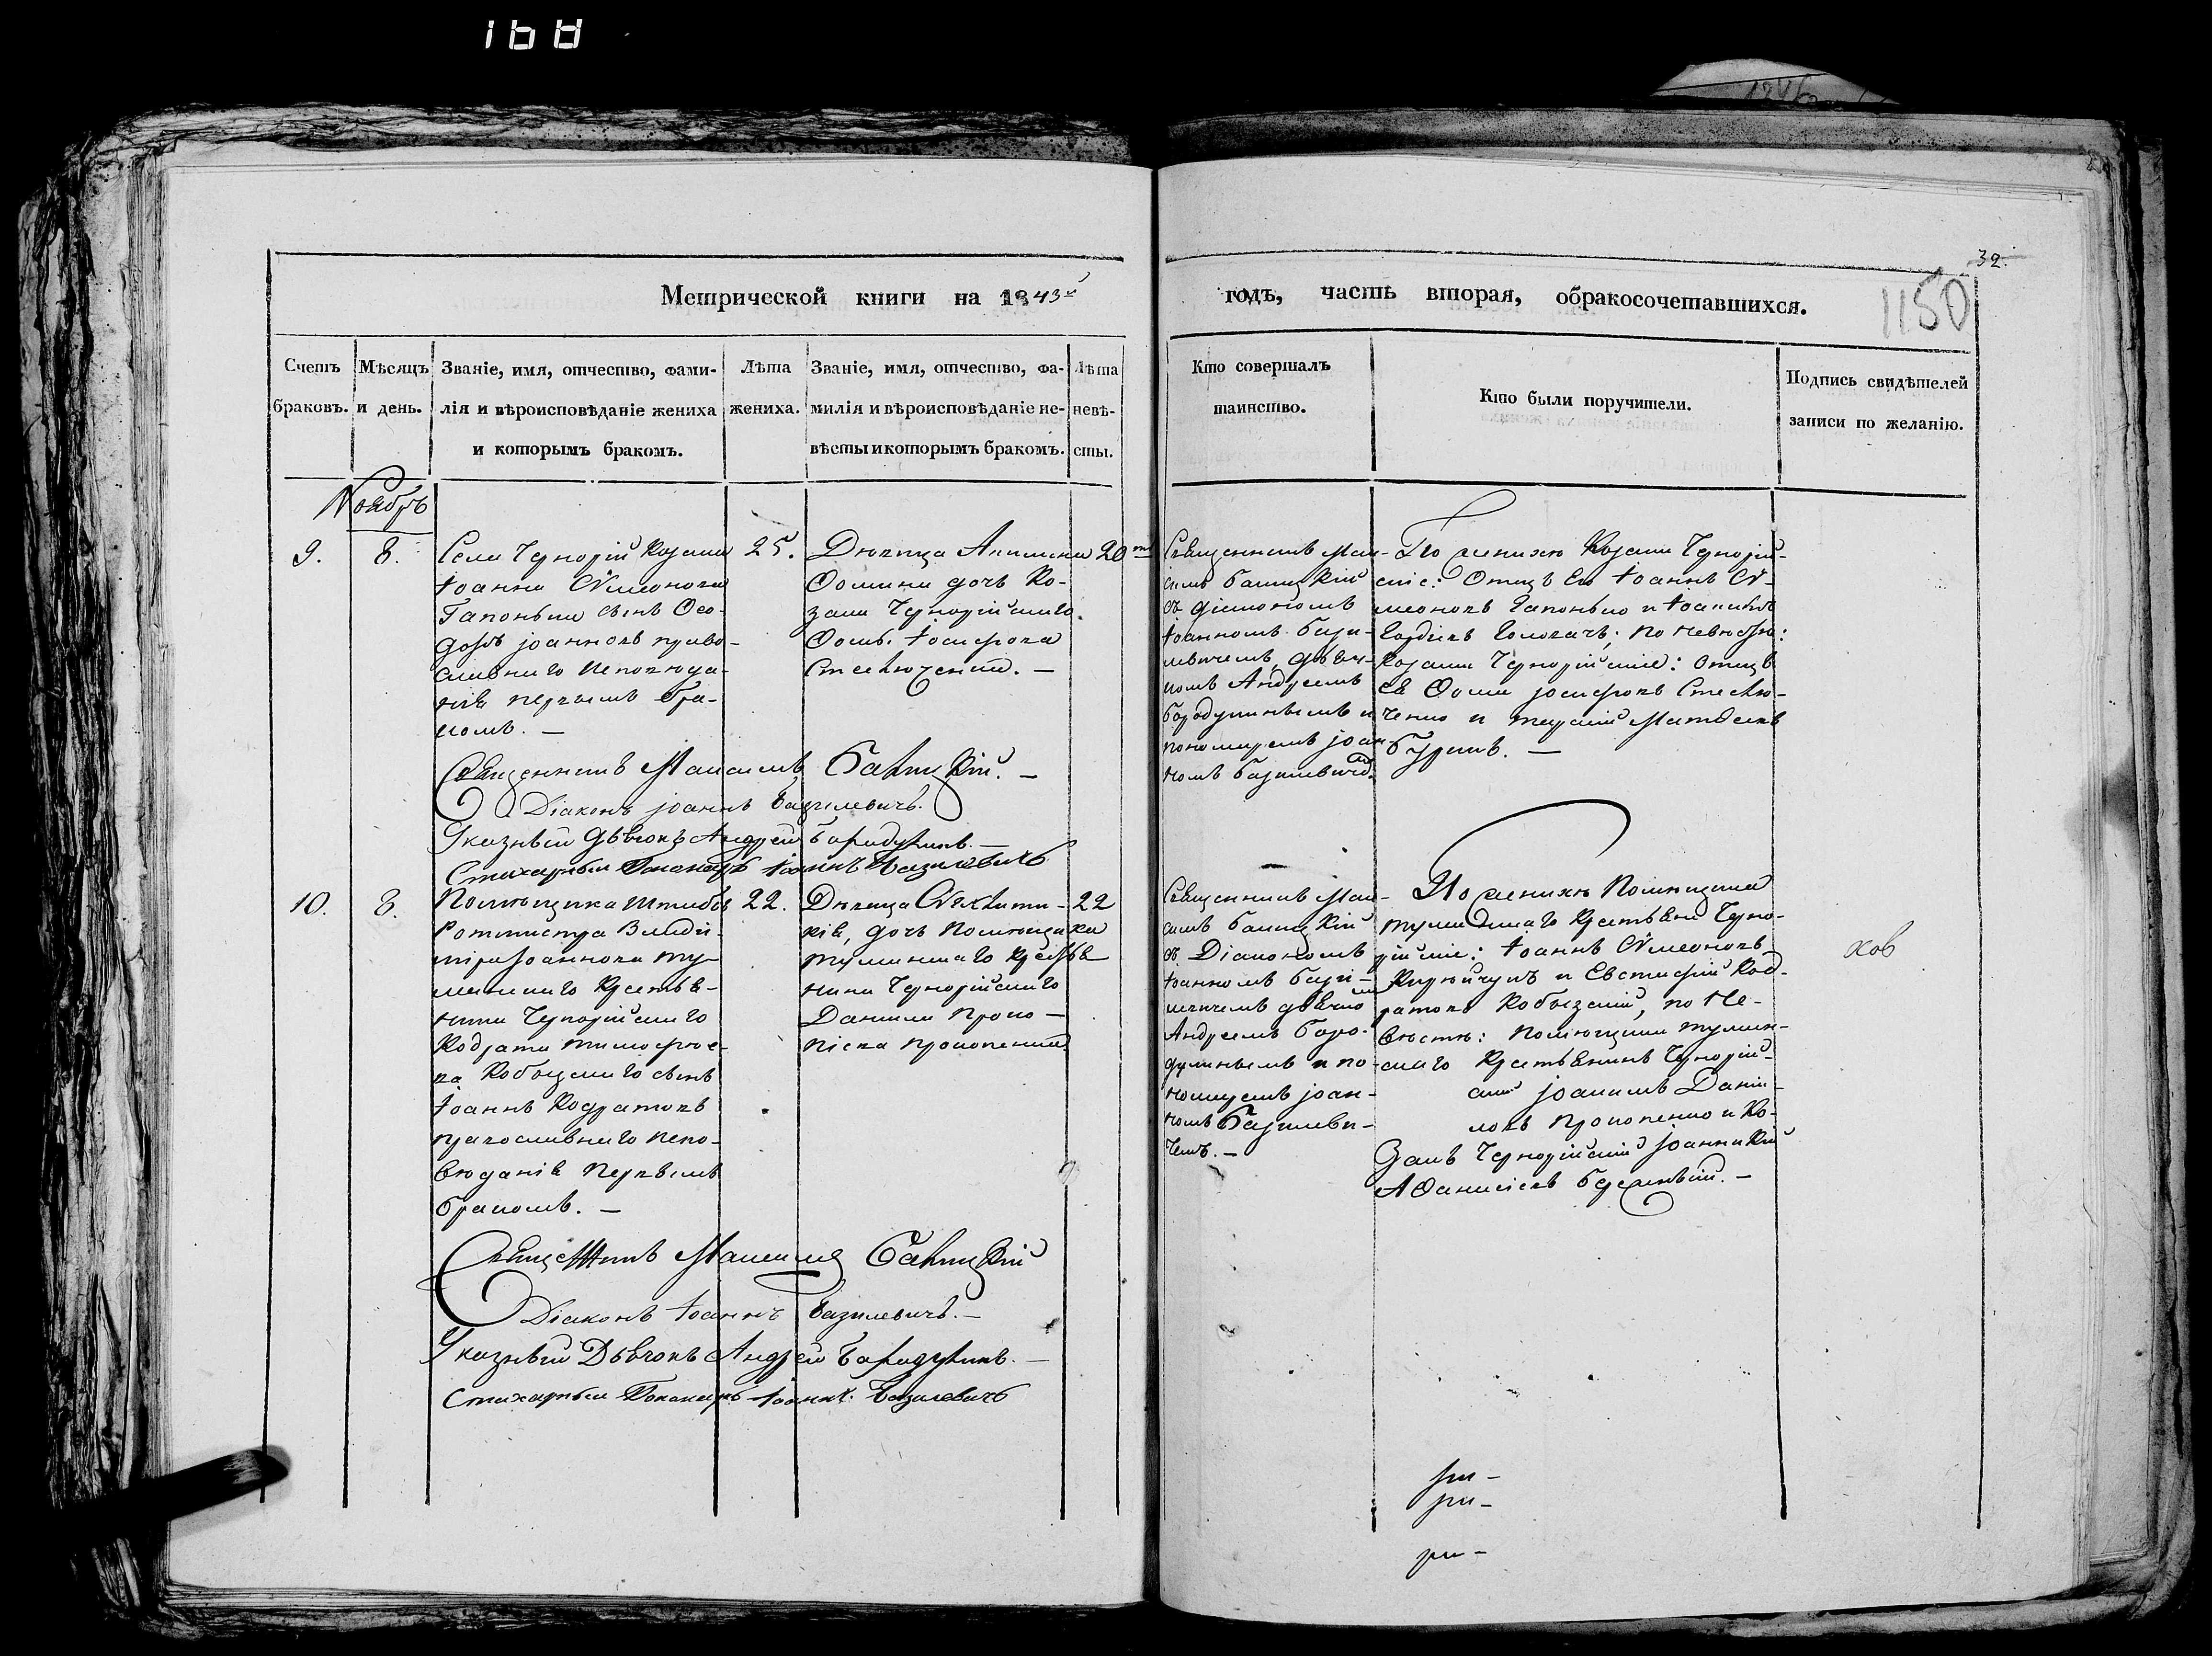 168
32.
1150
Метрической книги на 1843й
годъ, часть вторая, обракосочетавшихся.
Счетъ браковъ.
Мѣсяцъ и день.
Званіе, имя, отчество, фами-
лія и вѣроисповѣданіе жениха
и которымъ бракомъ.
Лѣта
жениха.
Званіе, имя, отчество, фа-
милія и вѣроисповѣданіе не-
вѣсты и которымъ бракомъ.
Лѣта
невѣ-
сты.
Кто совершалъ
таинство.
Кто были поручители.
Подпись свидѣтелей
записи по желанію.
Ноябрь
9.
8.
Села Чернорій Козака
Іоанна Сѵмеонова
Гапоньки сынъ Ѳео-
доръ Іоанновъ право-
славнаго исповѣда-
нія первымъ бра-
комъ. —
25.
Дѣвица Акилина
Ѳомина дочь Ко-
зака Чернорійскаго
Ѳомы Іосифова
20
Священникъ Мак-
симъ Бакицкій
съ Діакономъ
Іоанномъ Бази-
левичемъ, дьяч-
комъ Андреемъ
Бородулинымъ и
пономаремъ Іоан-
номъ Базилевичемъ
По женихѣ Козаки Чернорій-
скіе: Отецъ его Іоаннъ Сѵ-
меоновъ Гапонько и
по невѣстѣ:
Козаки Чернорійскіе: отецъ
ея Ѳома Іосифовъ
Священникъ Максимъ Бакицкій. —
Діаконъ Іоаннъ Базилевичъ.
Указный Дьячокъ Андрей Бородулинъ. —
Стихарный Пономарь Іоаннъ Базилевичъ
10.
8.
Помѣщика Штабъ
Ротмистра Влади-
міра Іоаннова Ту-
манскаго Крестья-
нина Чернорійскаго
Кодрата Тимофѣе-
ва Кобыцкаго сынъ
Іоаннъ Кодратовъ
православнаго испо-
вѣданія первымъ
бракомъ. —
22.
дочь Помѣщика
Туманскаго Крестья
нина Чернорійскаго
Даніила Проко-
піева Прокопенка
22
Священникъ Мак-
симъ Бакицкій
съ Діакономъ
Іоанномъ Бази-
левичемъ дьячкомъ
Андреемъ Боро-
дулинымъ и по-
номаремъ Іоан-
номъ Базилеви-
чемъ. —
По женихѣ Помѣщика
Туманскаго Крестьяне Черно-
рійскіе: Іоаннъ Сѵмеоновъ
и Евстафій Код-
ратовъ Кобыцкій, по не-
вѣстѣ: Помѣщика Туман-
скаго Крестьянинъ Чернорій-
скій Іоакимъ Даніи-
ловъ Прокопенко и Ко-
закъ Чернорійскій Іоанникій
Аѳанасіевъ
Священникъ Максимъ Бакицкій
Діаконъ Іоаннъ Базилевичъ. —
Указный Дьячокъ Андрей Бородулинъ. —
Стихарный Пономарь Іоаннъ Базилевичъ
ховъ
ри-
ри-
ри-